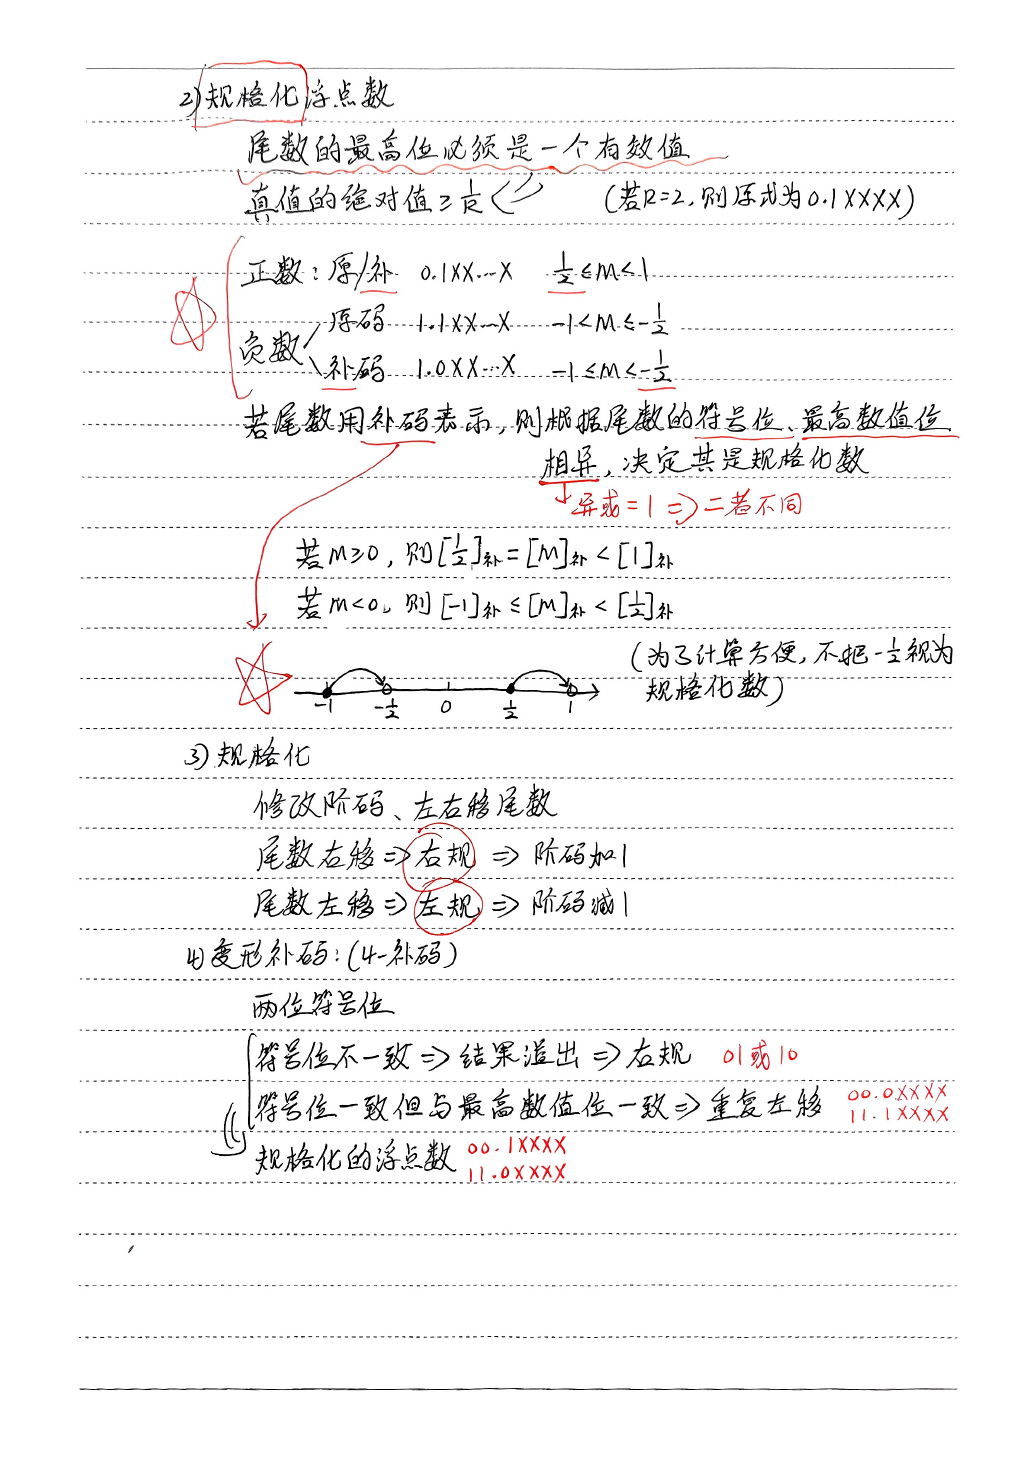 2) 规格化浮点数
尾数的最高位必须是一个有效值
真值的绝对值≥1/R (若R=2, 则原式为0.1XXXX)
正数: 原/补 0.1XX...X 1/2≤M<1
负数 原码 1.1XX...X -1<M≤-1/2
补码 1.0XX...X -1≤M<-1/2
若尾数用补码表示, 则根据尾数的符号位、最高数值位
相异, 决定其是规格化数
异或=1 => 二者不同
若M≥0, 则[1/2]补=[M]补<[1]补
若M<0, 则[-1]补≤[M]补<[1/2]补
(为了计算方便, 不把-1/2视为
规格化数)
-1 -1/2 0 1/2 1
3) 规格化
修改阶码、左右移尾数
尾数右移=>右规 => 阶码加1
尾数左移=>左规 => 阶码减1
4) 变形补码: (4-补码)
两位符号位
符号位不一致 => 结果溢出 => 右规 01或10
符号位一致但与最高数值位一致=>重复左移 00.0XXXX
11.1XXXX
规格化的浮点数 00.1XXXX
11.0XXXX